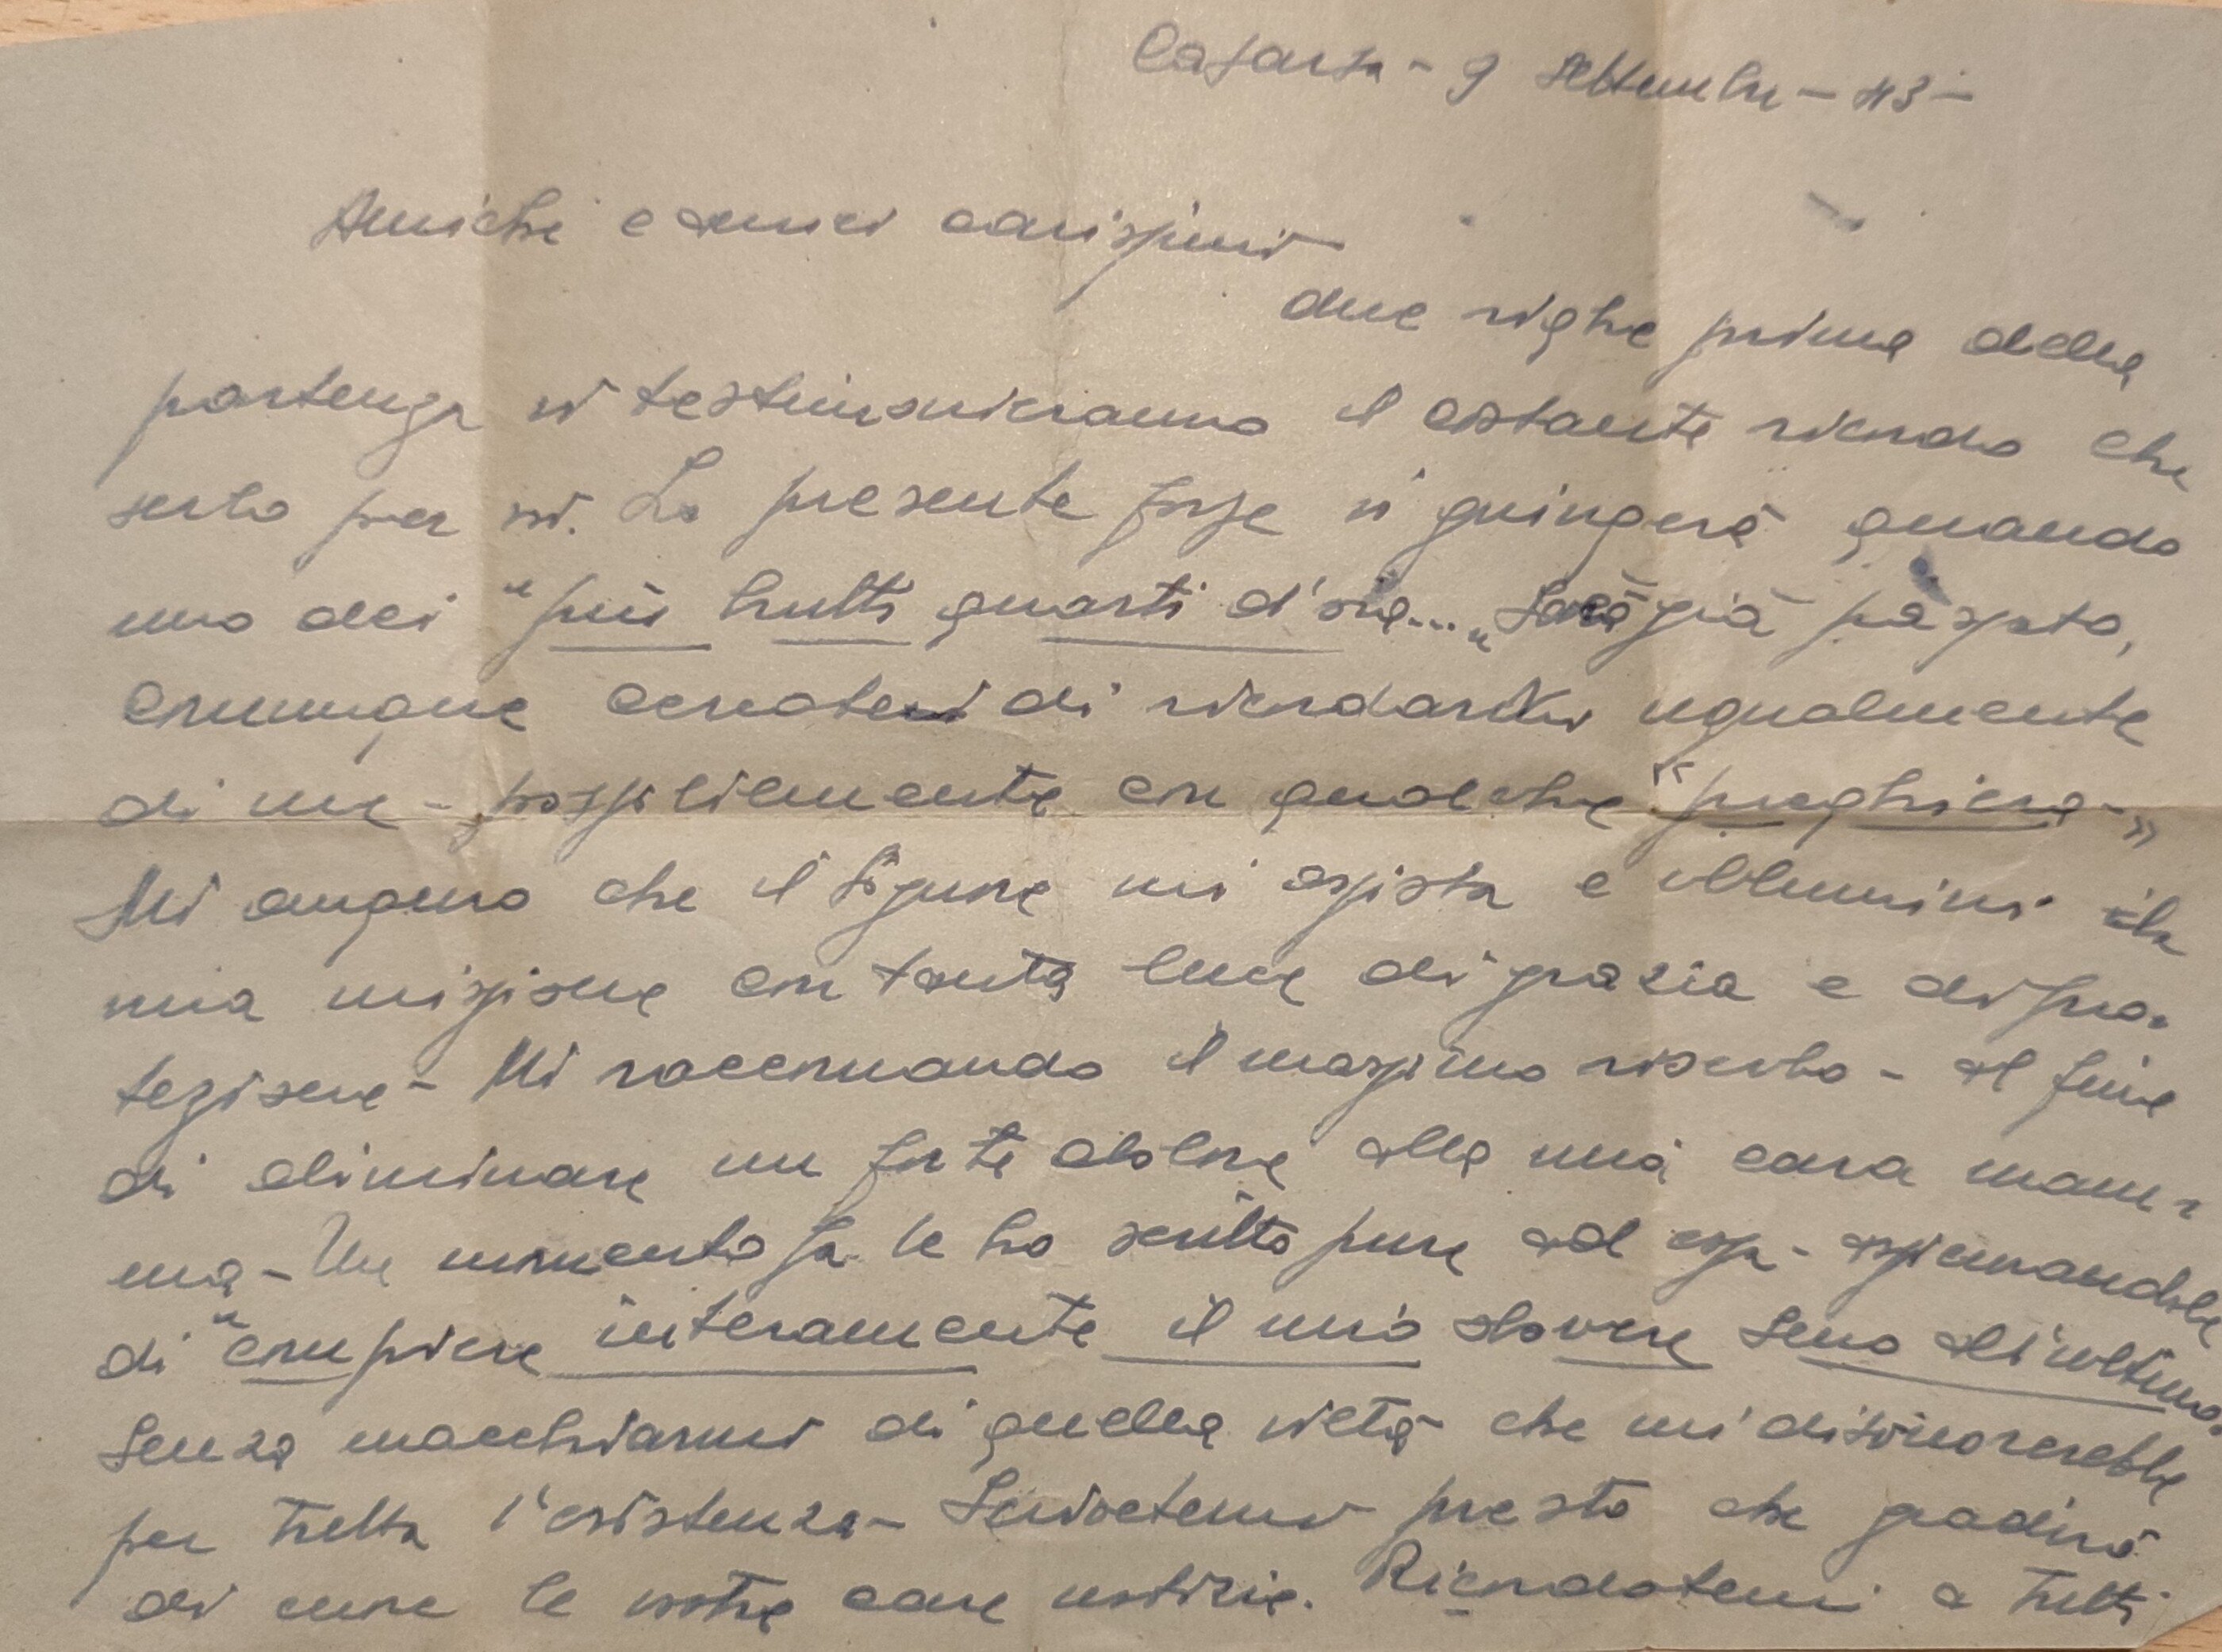 Casarsa - 9 Settembre - 43 -
Amiche e amici carissimi
due righe prima della
partenza vi testimonieranno il costante ricordo che
serbo per voi. La presente forse vi giungerà quando
uno dei "più brutti quarti d'ora... " sarà già passato,
comunque cercate di ricordarvi ugualmente
di me - possibilmente con qualche "preghiera -"
Mi auguro che il Signore mi assista e illumini la
mia missione con tanta luce di grazia e di pro-
tezione - Mi raccomando il massimo riserbo - al fine
di eliminare un forte dolore alla mia cara mam-
ma - Un momento fa le ho scritto pure ad essa - assicurandola
di "compiere interamente il mio dovere sino all'ultimo,
senza macchiarmi di quella viltà che mi disonorerebbe
per tutta l'esistenza - Scrivetemi presto che gradirò
di cuore le vostre care notizie. Ricordatemi a tutti